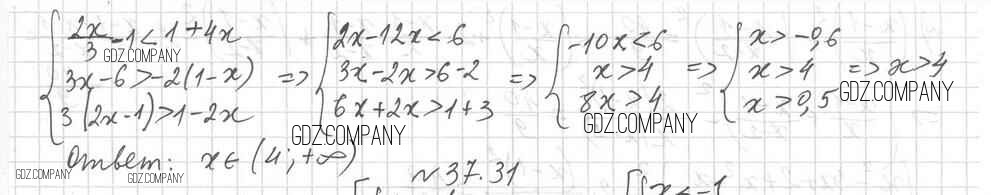 { 2x/3 - 1 < 1 + 4x
3x - 6 > -2(1 - x)
3(2x - 1) > 1 - 2x
=> { 2x - 12x < 6
3x - 2x > 6 - 2
6x + 2x > 1 + 3
=> { -10x < 6
x > 4
8x > 4
=> { x > -0,6
x > 4
x > 0,5
=> x > 4
GDZ.COMPANY
GDZ.COMPANY
GDZ.COMPANY
GDZ.COMPANY
Ответ: x ∈ (4; +∞)
GDZ.COMPANY
GDZ.COMPANY
N 37.31
x < -1